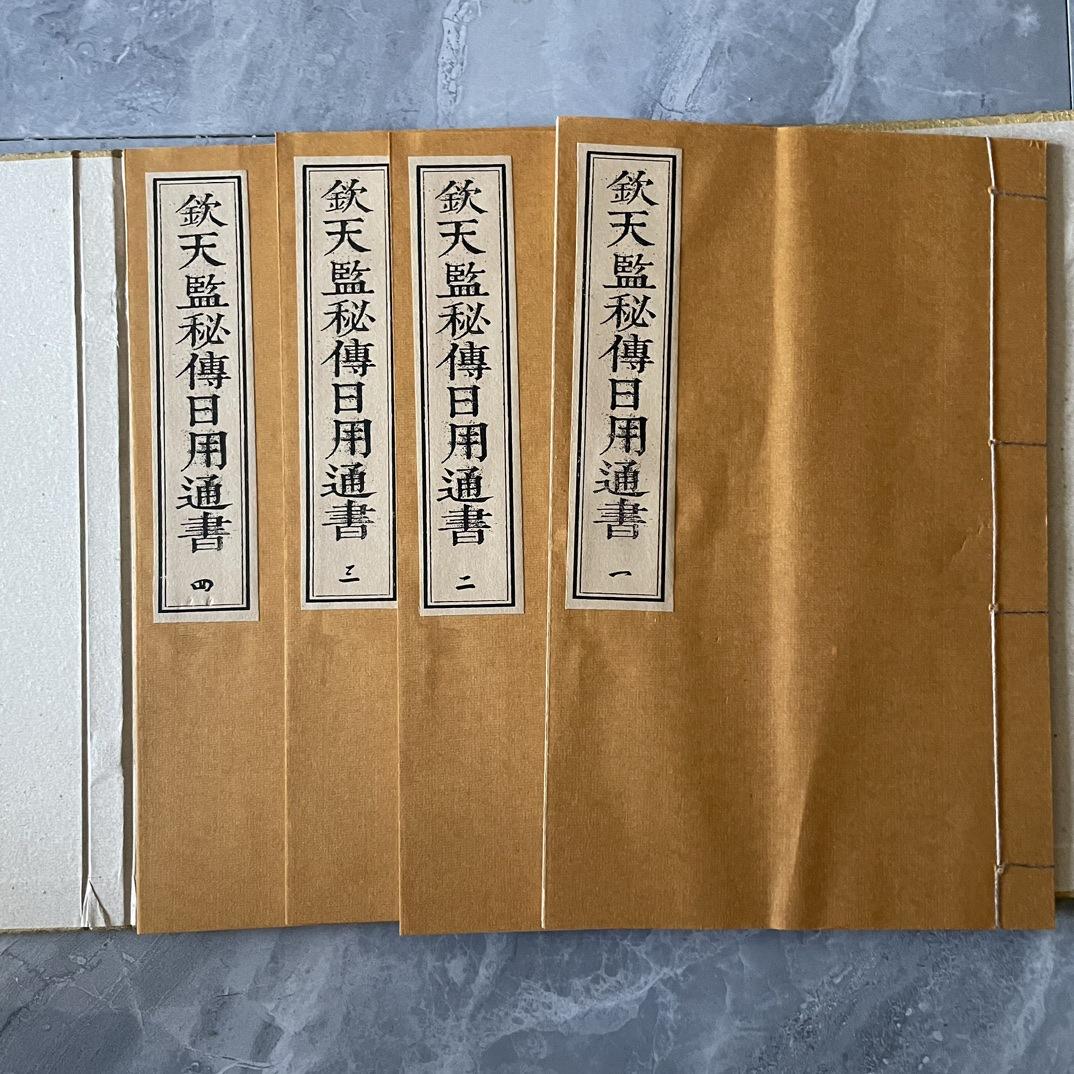 欽天監秘傳日用通書 一
欽天監秘傳日用通書 二
欽天監秘傳日用通書 三
欽天監秘傳日用通書 四